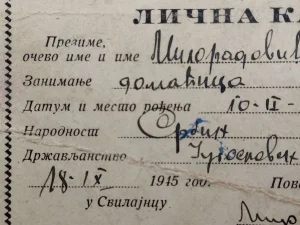 ЛИЧНА К
Презиме,
очево име и име Милорадовић
Занимање домаћица
Датум и место рођења 10-II-
Народност Српкиња
Држављанство Југословенск
18-IX 1945 год. Пов
у Свилајнцу